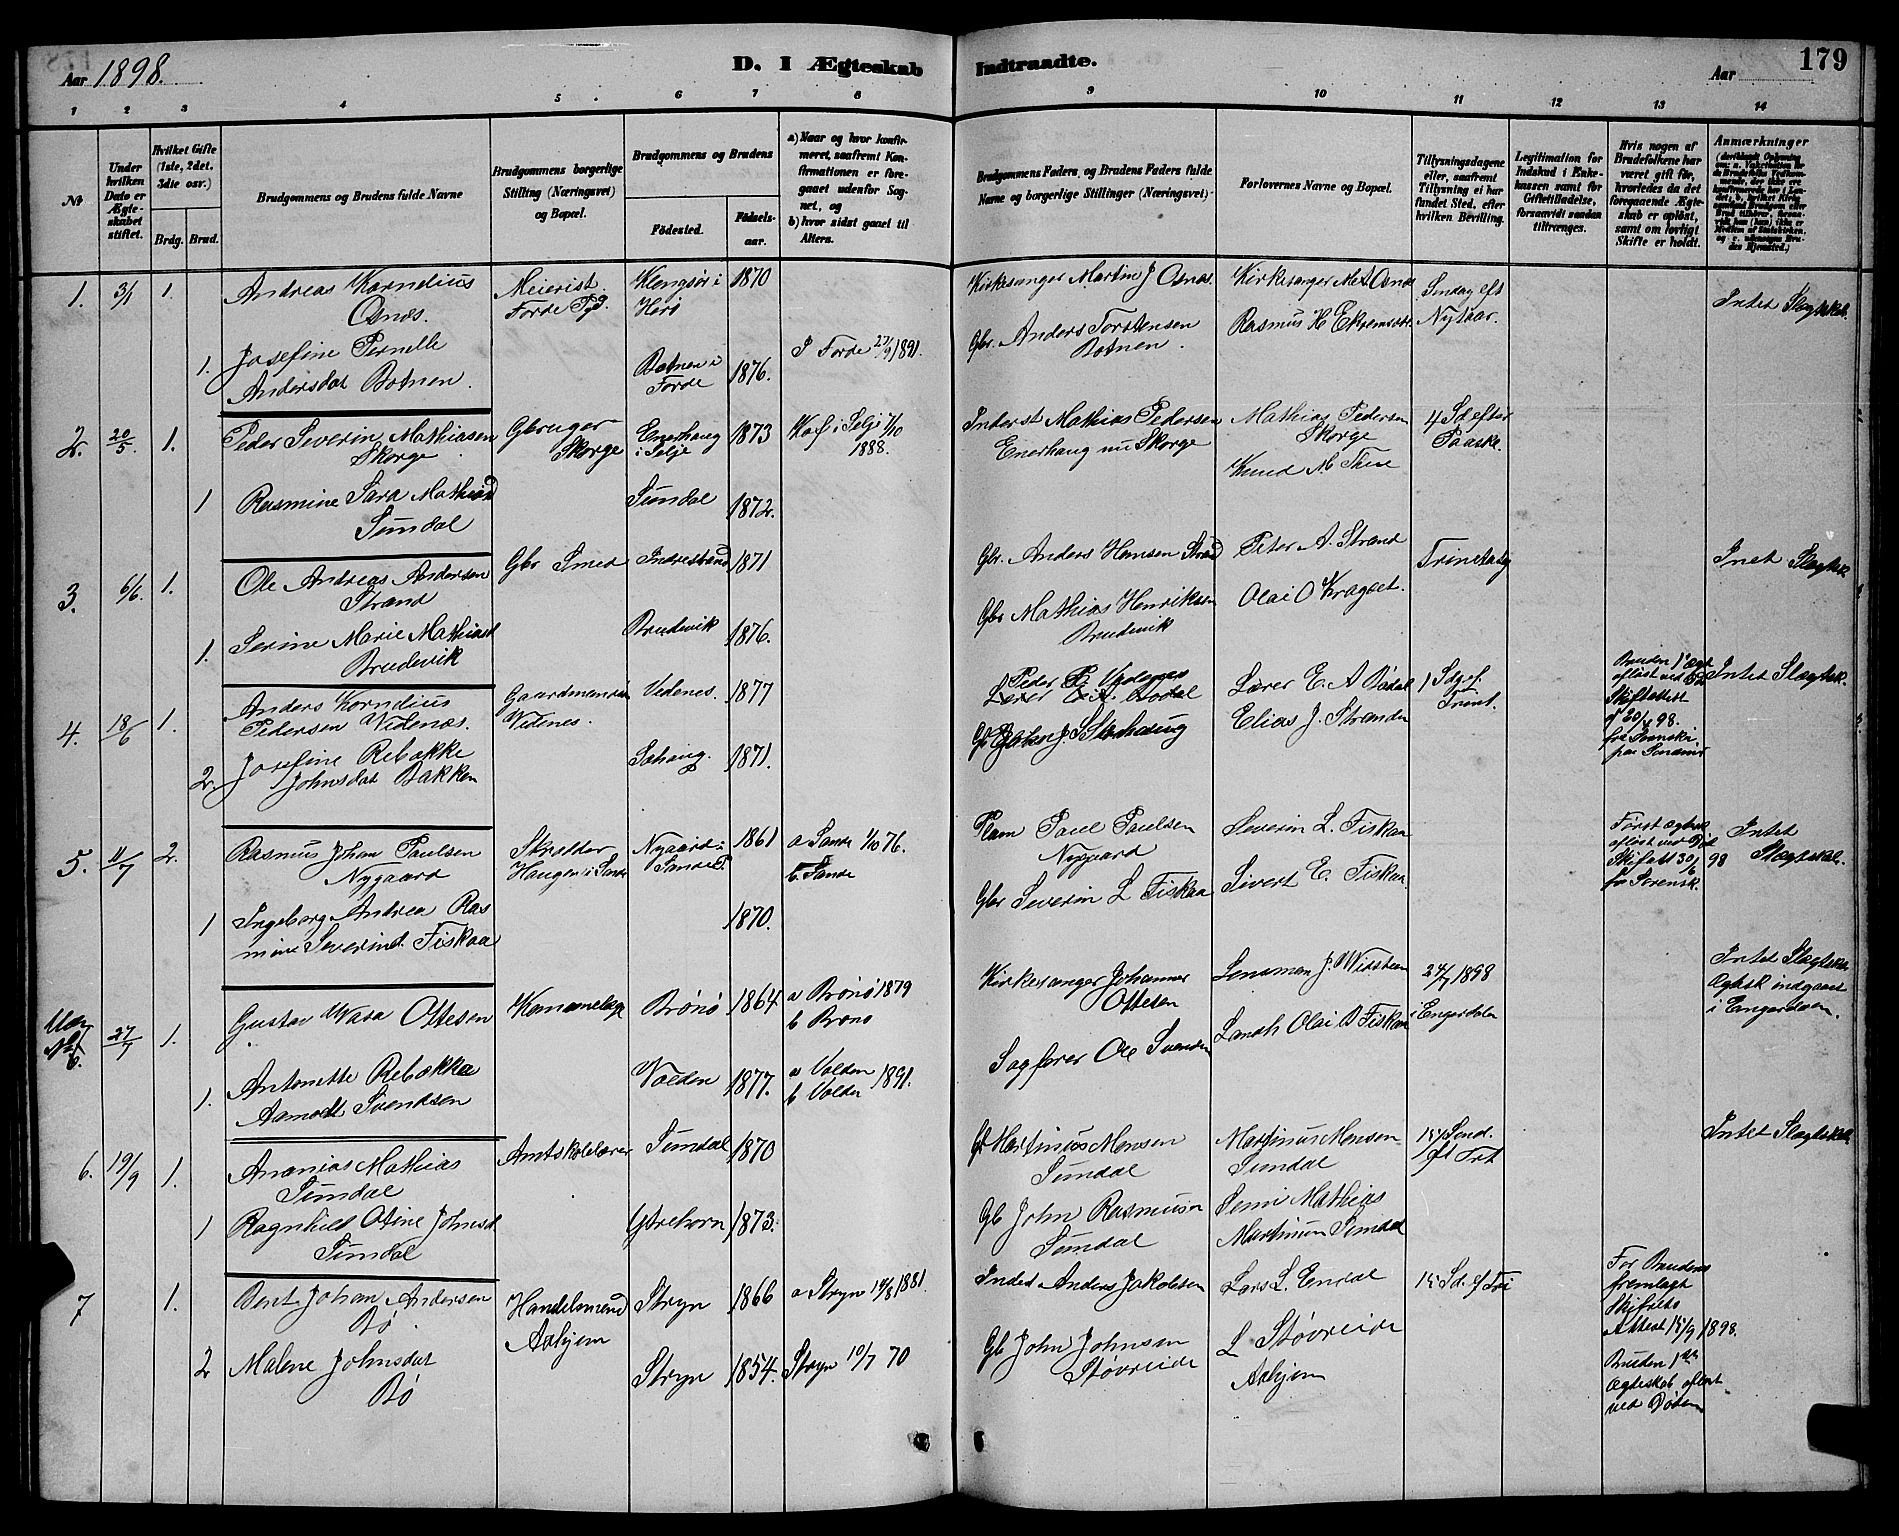 Aar 1898.
D. I Ægteskab Indtraadte.
Aar
179
1 2 3 4 5 6 7 8 9 10 11 12 13 14
№
Under hvilken Dato er Ægteskabet stiftet.
Hvilket Gifte (1ste, 2det. 3die osv.)
Brdg. Brud.
Brudgommens og Brudens fulde Navne
Brudgommens borgerlige Stilling (Næringsvei) og Bopæl.
Brudgommens og Brudens
Fødested.
Fødselsaar.
a) Naar og hvor konfirmeret, saafremt Konfirmationen er foregaaet udenfor Sognet, og
b) hvor sidst gaaet til Alters.
Brudgommens Faders, og Brudens Faders fulde Navne og borgerlige Stillinger (Næringsvei)
Forlovernes Navne og Bopæl.
Tillysningsdagene eller, saafremt Tillysning ei har fundet Sted, efter hvilken Bevilling.
Legitimation for Indskud i Enkekassen samt for Giftetilladelse, forsaavidt saadan tiltrænges.
Hvis nogen af Brudefolkene har været gift før, hvorledes da det foregaaende Ægteskab er opløst, samt om lovligt Skifte er holdt.
Anmærkninger
1. 3/1 1. Andreas Kornelius Osnes.
Meierist. Førde Pgd.
Klengsør i Herø 1870
Kirkesanger Martin J Osnes.
Kirkesanger M A Osnes
Søndag eft Nytaar.
Intet Slagtsk.
1. Josefine Pernelle Andersdat Botnen.
Botnen i Førde 1876.
I Førde 27/9 1891.
Gbr. Anders Torstensen Botnen.
Rasmus K Ekremsæter
2. 20/5. 1. Peder Severin Mathiasen Skorge
Gbruger Skorge
Enerhaug i Selje 1873
Kof i Selje 7/10 1888.
Inderst Mathias Pedersen Enerhaug nu Skorge
Mathias Pedersen Skorge
4 Sd efter Paaske.
1 Rasmine Sara Mathiasd Sundal
Sundal 1872.
Knud M
3. 6/6. 1. Ole Andreas Andersen Strand
Gbr Smed
Indrestrand 1871
Gbr. Anders Hansen Strand
Peter A. Strand
Trinetatis
Inet Slagtsk
1. Serine Marie Mathiasd Brudevik
Brudevik 1876.
Gbr Mathias Henriksen Brudevik
Olai O Kragset.
4. 18/6 1. Anders Kornelius Pedersen Videnæs.
Gaardmandssøn Videnes.
Videnes. 1877
Peder P. Videnes
Lærer E. A. Bødal
Lærer E. A Bødal
1 Sdg ef. Trint.
Bruden 1ste Ægt opløst ved Død Skifteattest af 20/4 98.
Intet Slagtsk.
2. Josefine Rebekke Johnsdat Bakken
1871.
Elias J. Stranden
5. 11/7 2. Rasmus Johan Paulsen Nygaard
Skrædder Haugen i Sande
Nygaard i Sande 1861
a Sande 1/10 76.
b. Sande
Plsm Paul Paulsen Nygaard
Severin L. Fiskaa
Først ægtsk opløst ved Død Skifatt 30/6 98
Intet Slagtsk.
1 Ingeborg Andrea Rasmine Severind. Fiskaa
1870.
Gbr Severin L Fiskaa
Sivert E. Fiskaa.
Uden № 6. 27/7 1. Gustav Wasa Ottesen
Kommunelæge
Brønø 1864
a Brønø 1879
b Brønø
Kirkesanger Johannes Ottesen
Lensman J. Widsteen
24/7 1898 i Engerdalen
Intet Slagtsk.
Ægtsk indgaaet i Engerdalen.
1. Antonette Rebækka Aamodt Svendsen
Volden 1877.
a Volden 1891.
b Volden
Sagfører Ole Svendsen
Landh Olai B Fiskaa
6. 19/9 1. Ananias Mathias Sundal
Amtskolelærer
Sundal 1870
Gb Martinus Monsen Sundal
Martinus Monsen Sundal
15de Sønd. ef Trt
Intet Slagtsk.
1 Ragnhild Oline Johnsd Sundal
Ytrehorn 1873.
Gb John Rasmusen Sundal
Mathias Martinusen Sundal
7 1. Bent Johan Andersen Bø
Handelsmand Aahjem
Stryn 1866
a Stryn 14/8 1881.
Inderst Anders Jakobsen
Lars L. Endal
15 Sd. ef Tri
For Bruden fremlagt Skifrets Attest 15/9 1898.
2 Malene Johnsdat Bø
Stryn 1854.
Stryn 10/7 70
Gb John Johnsen Støvreide
L Støvreide Aahjem
Bruden 1ste Ægteskab opløst ved Døden